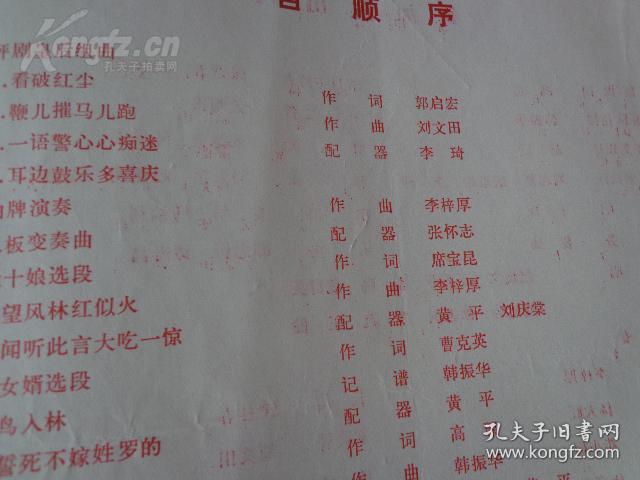 Kongfz.cn
孔夫子拍卖网
顺 序
评剧皇后组曲
看破红尘
鞭儿摧马儿跑
一语警心心痴迷
耳边鼓乐多喜庆
牌演奏
板变奏曲
十娘选段
望风林红似火
闻听此言大吃一惊
女婿选段
鸟入林
誓死不嫁姓罗的
作 词 郭启宏
作 曲 刘文田
配 器 李 琦
作 曲 李梓厚
配 器 张怀志
作 词 席宝昆
作 曲 李梓厚
配 器 黄 平 刘庆棠
作 词 曹克英
记 谱 韩振华
配 器 黄 平
作 词 高
作 曲 韩振华
孔夫子旧书网
www.kongfz.com